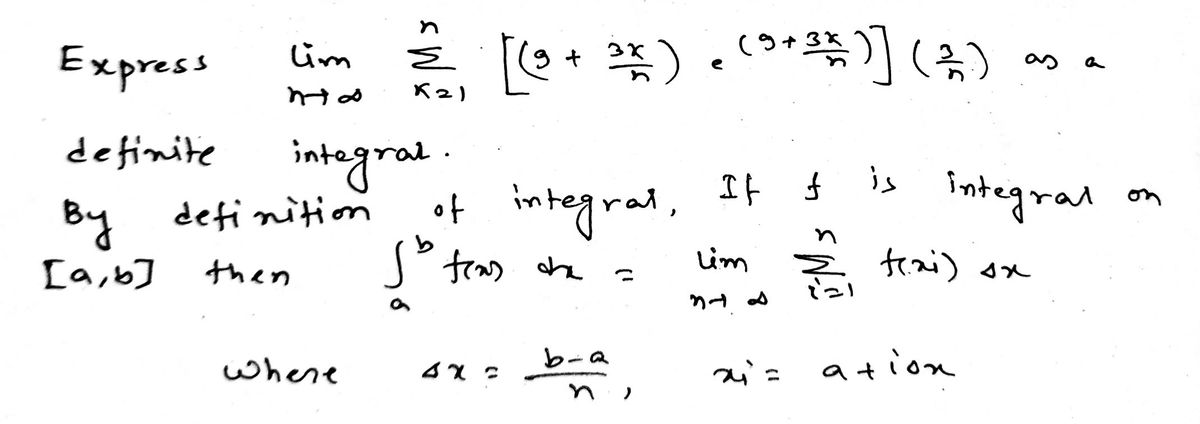 Express lim n→∞ n Σ K=1 [(9 + 3K/n) · e^(9 + 3K/n)] (3/n) as a
definite integral.
By definition of integral, If f is integral on
[a,b] then ∫_a^b f(x) dx = lim n→∞ n Σ i=1 f(xi) Δx
where Δx = b-a/n, xi = a + iΔx